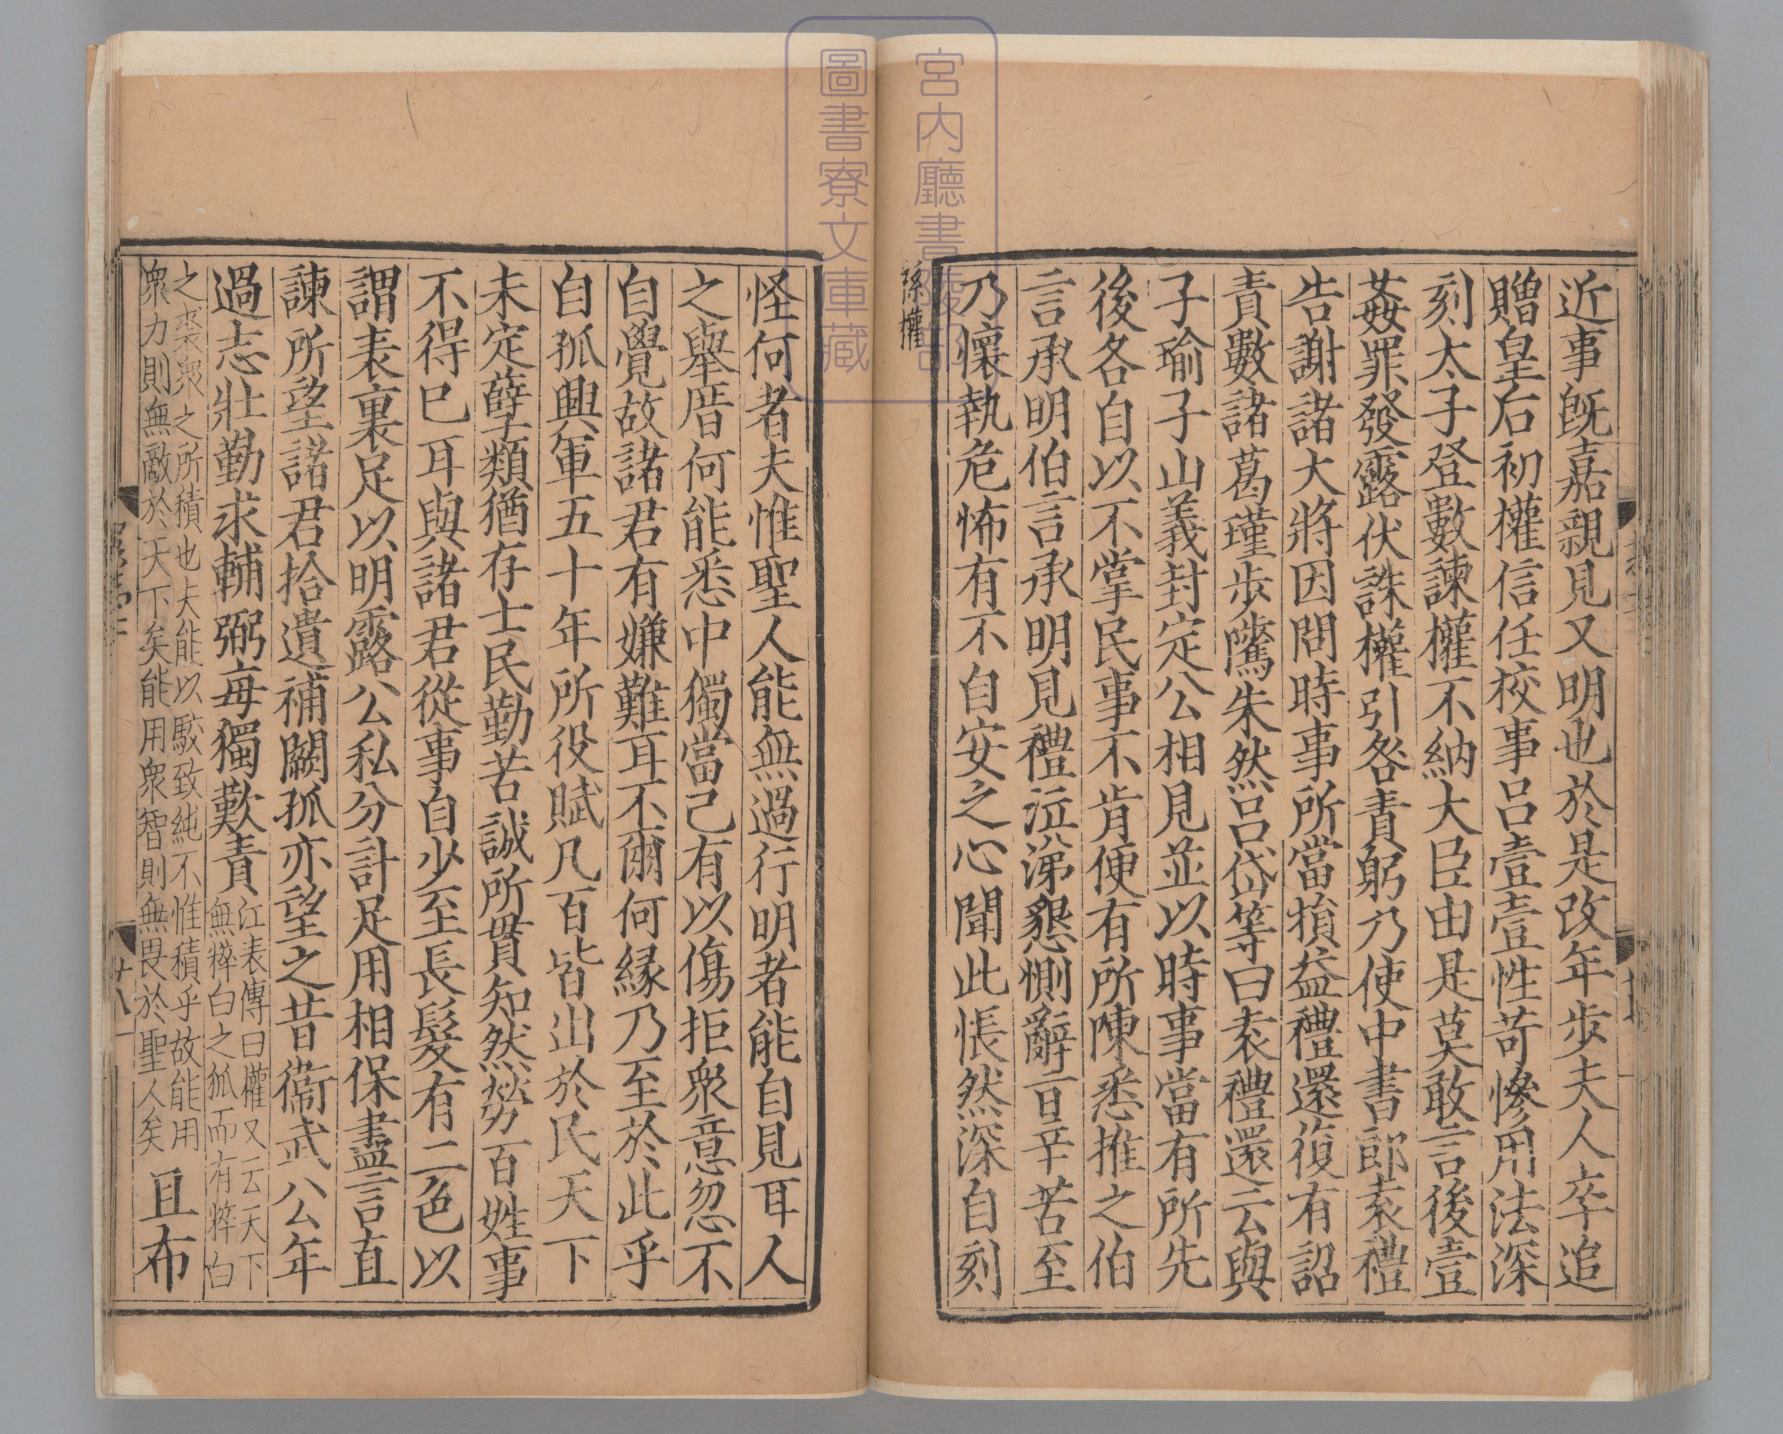 近事既嘉親見又明也於是改年步夫人卒追
贈皇后初權信任校事吕壹壹性苛慘用法深
刻太子登數諫權不納大臣由是莫敢言後壹
姦罪發露伏誅權引咎責躬乃使中書郎袁禮
告謝諸大將因問時事所當損益禮還復有詔
責數諸葛瑾步騭朱然吕岱等曰袁禮還云與
子瑜子山義封定公相見並以時事當有所先
後各自以不掌民事不肯便有所陳悉推之伯
言承明伯言承明見禮泣涕懇惻辭旨辛苦至
乃懷執危怖有不自安之心聞此悵然深自刻
孫權
怪何者夫惟聖人能無過行明者能自見耳人
之舉厝何能悉中獨當己有以傷拒衆意忽不
自覺故諸君有嫌難耳不爾何緣乃至於此乎
自孤興軍五十年所役賦凡百皆出於民天下
未定孽類猶存士民勤苦誠所貫知然勞百姓事
不得已耳與諸君從事自少至長髮有二色以
謂表裏足以明露公私分計足用相保盡言直
諫所望諸君拾遺補闕孤亦望之昔衞武公年
過志壯勤求輔弼每獨歎責
江表傳曰權又云天下
無粹白之狐而有粹白
之裘衆之所積也夫能以駮致純不惟積乎故能用
衆力則無敵於天下矣能用衆智則無畏於聖人矣
且布
廿八
宮內廳書陵部
圖書寮文庫藏